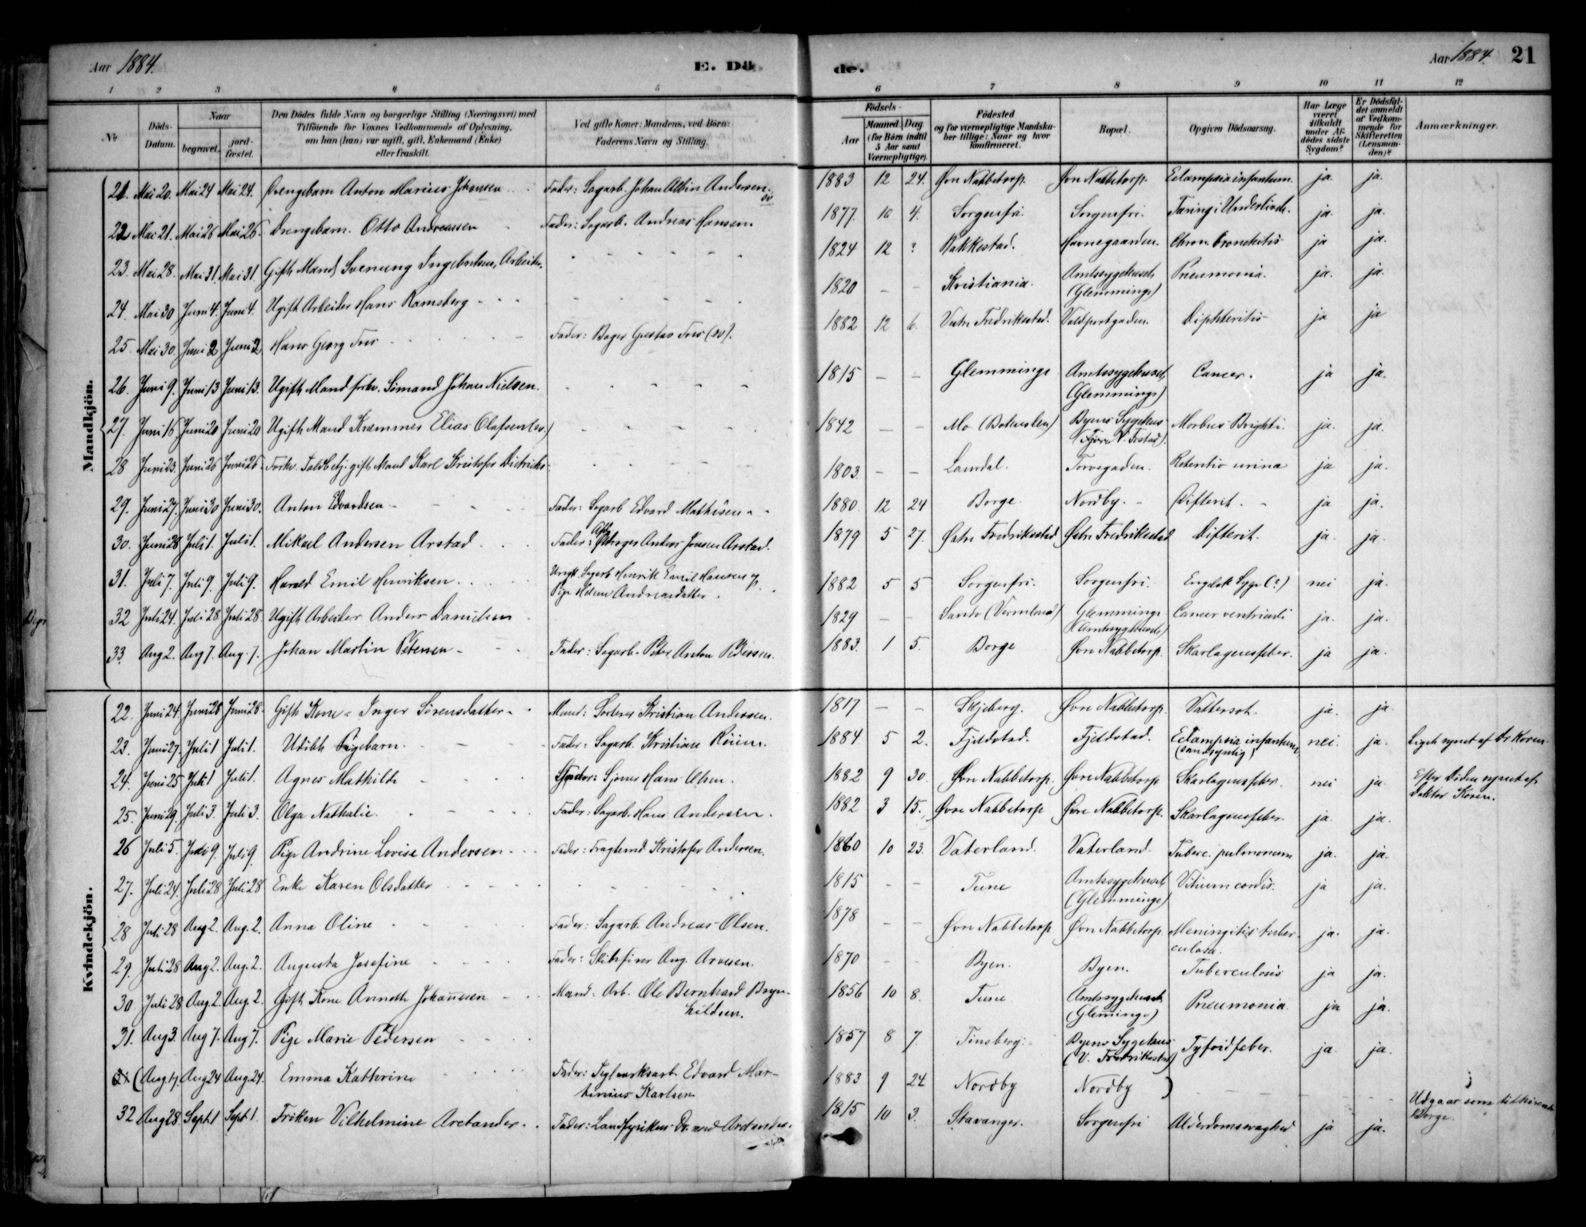 Aar 1884. E. Dö
de. Aar 1884. 21
1 2 3 4 5 6 7 8 9 10 11 12
No. Döds-Datum. Naar begravet. jordfæstet. Den Dödes fulde Navn og borgerlige Stilling (Næringsvei) med Tilföiende for Voxnes Vedkommende af Oplysning, om han (hun) var ugift, gift, Enkemand (Enke) eller fraskilt. Ved gifte Koner: Mandens, ved Börn: Faderens Navn og Stilling. Födsels- Aar Maaned Dag (for Börn indtil 5 Aar samt Værnepligtige). Födested og for værnepligtige Mandskaber tillige: Naar og hvor konfirmeret. Bopæl. Opgiven Dödsaarsag. Har Læge været tilkaldt under Afdödes sidste Sygdom? Er Dödsfaldet anmeldt af Vedkommende for Skifteretten (Lensmanden)? Anmærkninger.
Mandkjön.
21. Mai 20. Mai 24 Mai 24. Drengebarn Anton Marius Johansen Fader: Sagarb. Johan Albin Andersen. 1883 12 24. Øvre Nabbetorp. Øvre Nabbetorp. Eclampsia infantum. ja. ja.
22 Mai 21. Mai 26 Mai 26. Drengebarn Otto Andreassen Fader: Sagarb. Andreas Hansen 1877. 10 4. Sorgenfri. Sorgenfri. Tæring i Underlivet. ja. ja.
23. Mai 28. Mai 31. Mai 31 Gift Mand Svenung Ingebretsen, Arbeider. 1824 12 ? Rakkestad. Havnegaarden. Chron. bronchitis ja ja.
24. Mai 30 Juni 4. Juni 4. Ugift Arbeider Hans Ramsberg 1820 - - Kristiania. Amtssygehuset (Glemminge) Pneumonia. ja. ja.
25. Mai 30. Juni 2 Juni 2 Hans Georg Friis Fader: Bager Gustav Friis 1882 12 6. Vestre Fredriksstad. Voldportgaden. Diphteritis ja ja
26. Juni 9. Juni 13 Juni 13. Ugift Mand forhv. Sömand Johan Nielsen. 1815 - - Glemminge Amtssygehuset (Glemminge) Cancer. ja ja.
27. Juni 16 Juni 20 Juni 20 Ugift Mand Kræmmer Elias Olafsen 1842 - - Mo (Bohuslen) Byens Sygehus Morbus Brighti. ja. ja.
28 Juni 23. Juni 26 Juni 26. Forhv. Toldbetj. gift Mand Karl Kristofer Dietrichs 1803. - - Laurdal. Torvegaden. Retentio urina ja ja.
29. Juni 27. Juni 30 Juni 30. Anton Edvardsen Fader: Sagarb Edvard Mathisen 1880. 12 24 Borge. Nordby. Difterit. ja ja.
30. Juni 28 Juli 1. Juli 1. Mikael Andersen Arstad Fader: Anders Jensen Arstad. 1879 5 27. Østre Fredriksstad Østre Fredriksstad Difterit. ja. ja.
31. Juli 7. Juli 9. Juli 9. Harald Emil Henriksen Ungk. Sagarb Henrik Emil Hansen og Pige Helene Andreasdatter. 1882 5 5 Sorgenfri. Sorgenfri. Engelsk Syge (?) nei ja.
32 Juli 24. Juli 28 Juli 28 Ugift Arbeider Anders Danielsen 1829 - - (Vermland) Glemminge (Amtssygehuset) Cancer ventriculi ja. ja.
33. Aug 2. Aug 7. Aug 7. Johan Martin Petersen Fader: Sagarb. Peter Anton Pettersen. 1883. 1 5. Borge Øvre Nabbetorp. Skarlagensfeber. ja ja.
Kvindekjön.
22. Juni 24 Juni 28 Juni 28. Gift Kone Inger Sörensdatter Mand: Kristian Andersen. 1817 - - Skjeberg. Øvre Nabbetorp. Vattersot. ja. ja
23. Juni 27. Juli 1 Juli 1. Udöbt Pigebarn. Fader: Sagarb. Kristian 1884 5 2. Fjeldstad. Fjeldstad. Eclampsia infantum (sandsynlig) nei ja. Liget synet af Dr Koren.
24. Juni 25 Juli 1 Juli 1. Agnes Mathilde Fader: Hans Olsen. 1882 9 30. Øvre Nabbetorp. Øvre Nabbetorp Skarlagensfeber. nei ja Efter Döden synet af Doktor Koren.
25. Juni 29. Juli 3. Juli 3. Olga Nathalie Fader: Sagarb. Hans Andersen. 1882 3 15. Øvre Nabbetorp Øvre Nabbetorp. Skarlagensfeber. ja ja.
26 Juli 5. Juli 9. Juli 9 Pige Andrine Lovise Andersen Fader: Kristofer Andersen. 1860 10 23. Vaterland. Vaterland. Tuberc. pulmonum ja. ja.
27. Juli 24. Juli 28 Juli 28 Enke Karen Olsdatter 1815 - - Tune Amtssygehuset (Glemminge) Vitium cordis. ja ja.
28 Juli 28 Aug 2. Aug. 2. Anna Oline Fader: Sagarb. Andreas Olsen. 1878 - - Øvre Nabbetorp Øvre Nabbetorp. Meningitis tuberculosa. ja. ja.
29 Juli 28 Aug 2. Aug. 2. Augusta Josefine Fader: Skibsförer Aug. Arvesen. 1870 - - Byen. Byen. Tuberculosis ja ja.
30 Juli 28 Aug 2. Aug. 2. Gift Kone Annette Johannesen Mand: Arb. Ole Bernhard Brynhildsen. 1856 10 8. Tune Amtssygehuset (Glemminge) Pneumonia ja ja.
31. Aug 3. Aug 7. Aug 7. Pige Marie Pedersen 1857 8 7 Tönsberg. Byens Sygehus (V. Fredriksstad) Tyfoidfeber. ja. ja.
(Aug 17. Aug 24 Aug. 24. Emma Kathrine Fader: Edvard Martinius Karlsen. 1883 9 24 Nordby Nordby ) Udgaar som tilhörende Borge.
32 Aug 28. Sept. 1 Sept 1. Fröken Vilhelmine Arctander Fader: Landfysikus Arctander. 1815 10 3. Stavanger. Sorgenfri Alderdomssvaghed ja ja.